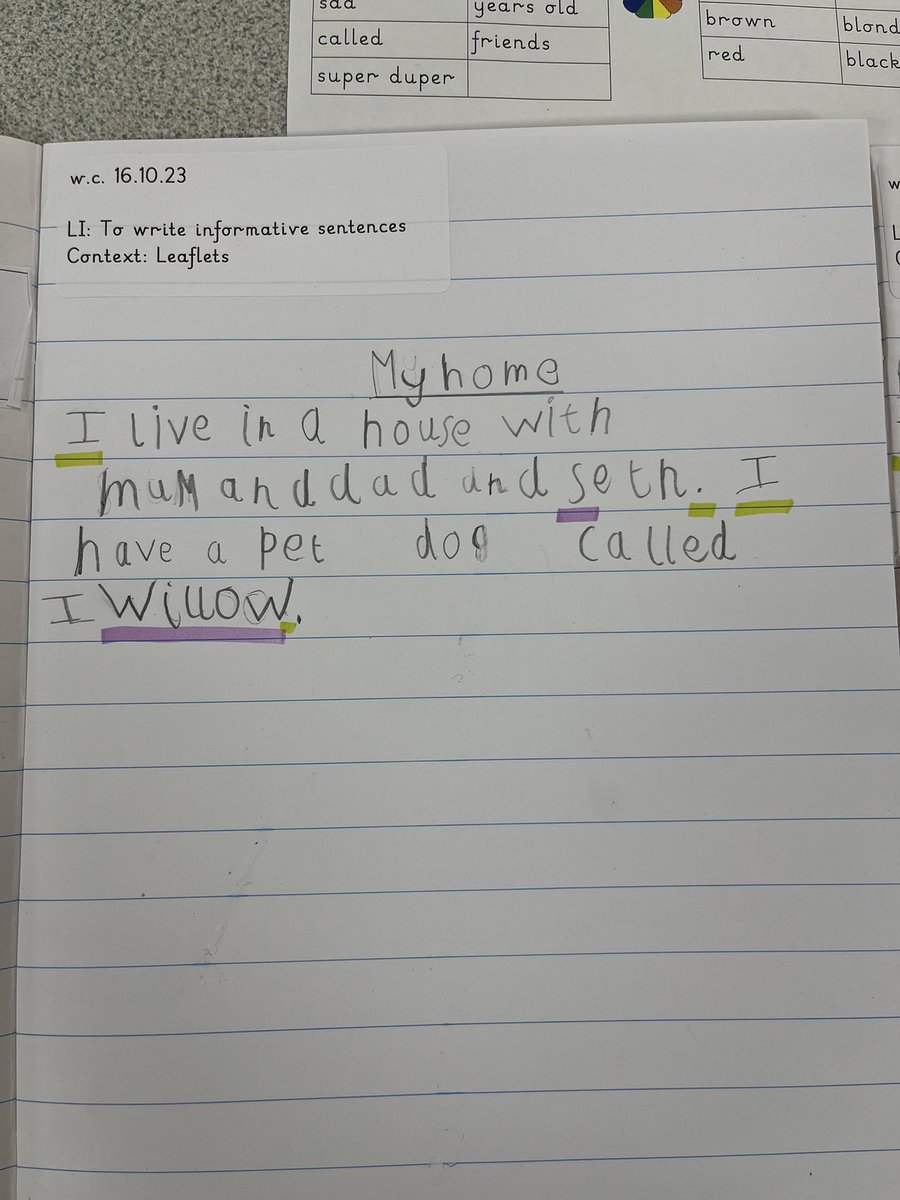 sad years old
called friends
super duper
brown blond
red black
w.c. 16.10.23
LI: To write informative sentences
Context: Leaflets
My home
I live in a house with
mum and dad and seth. I
have a pet dog called
I Willow.